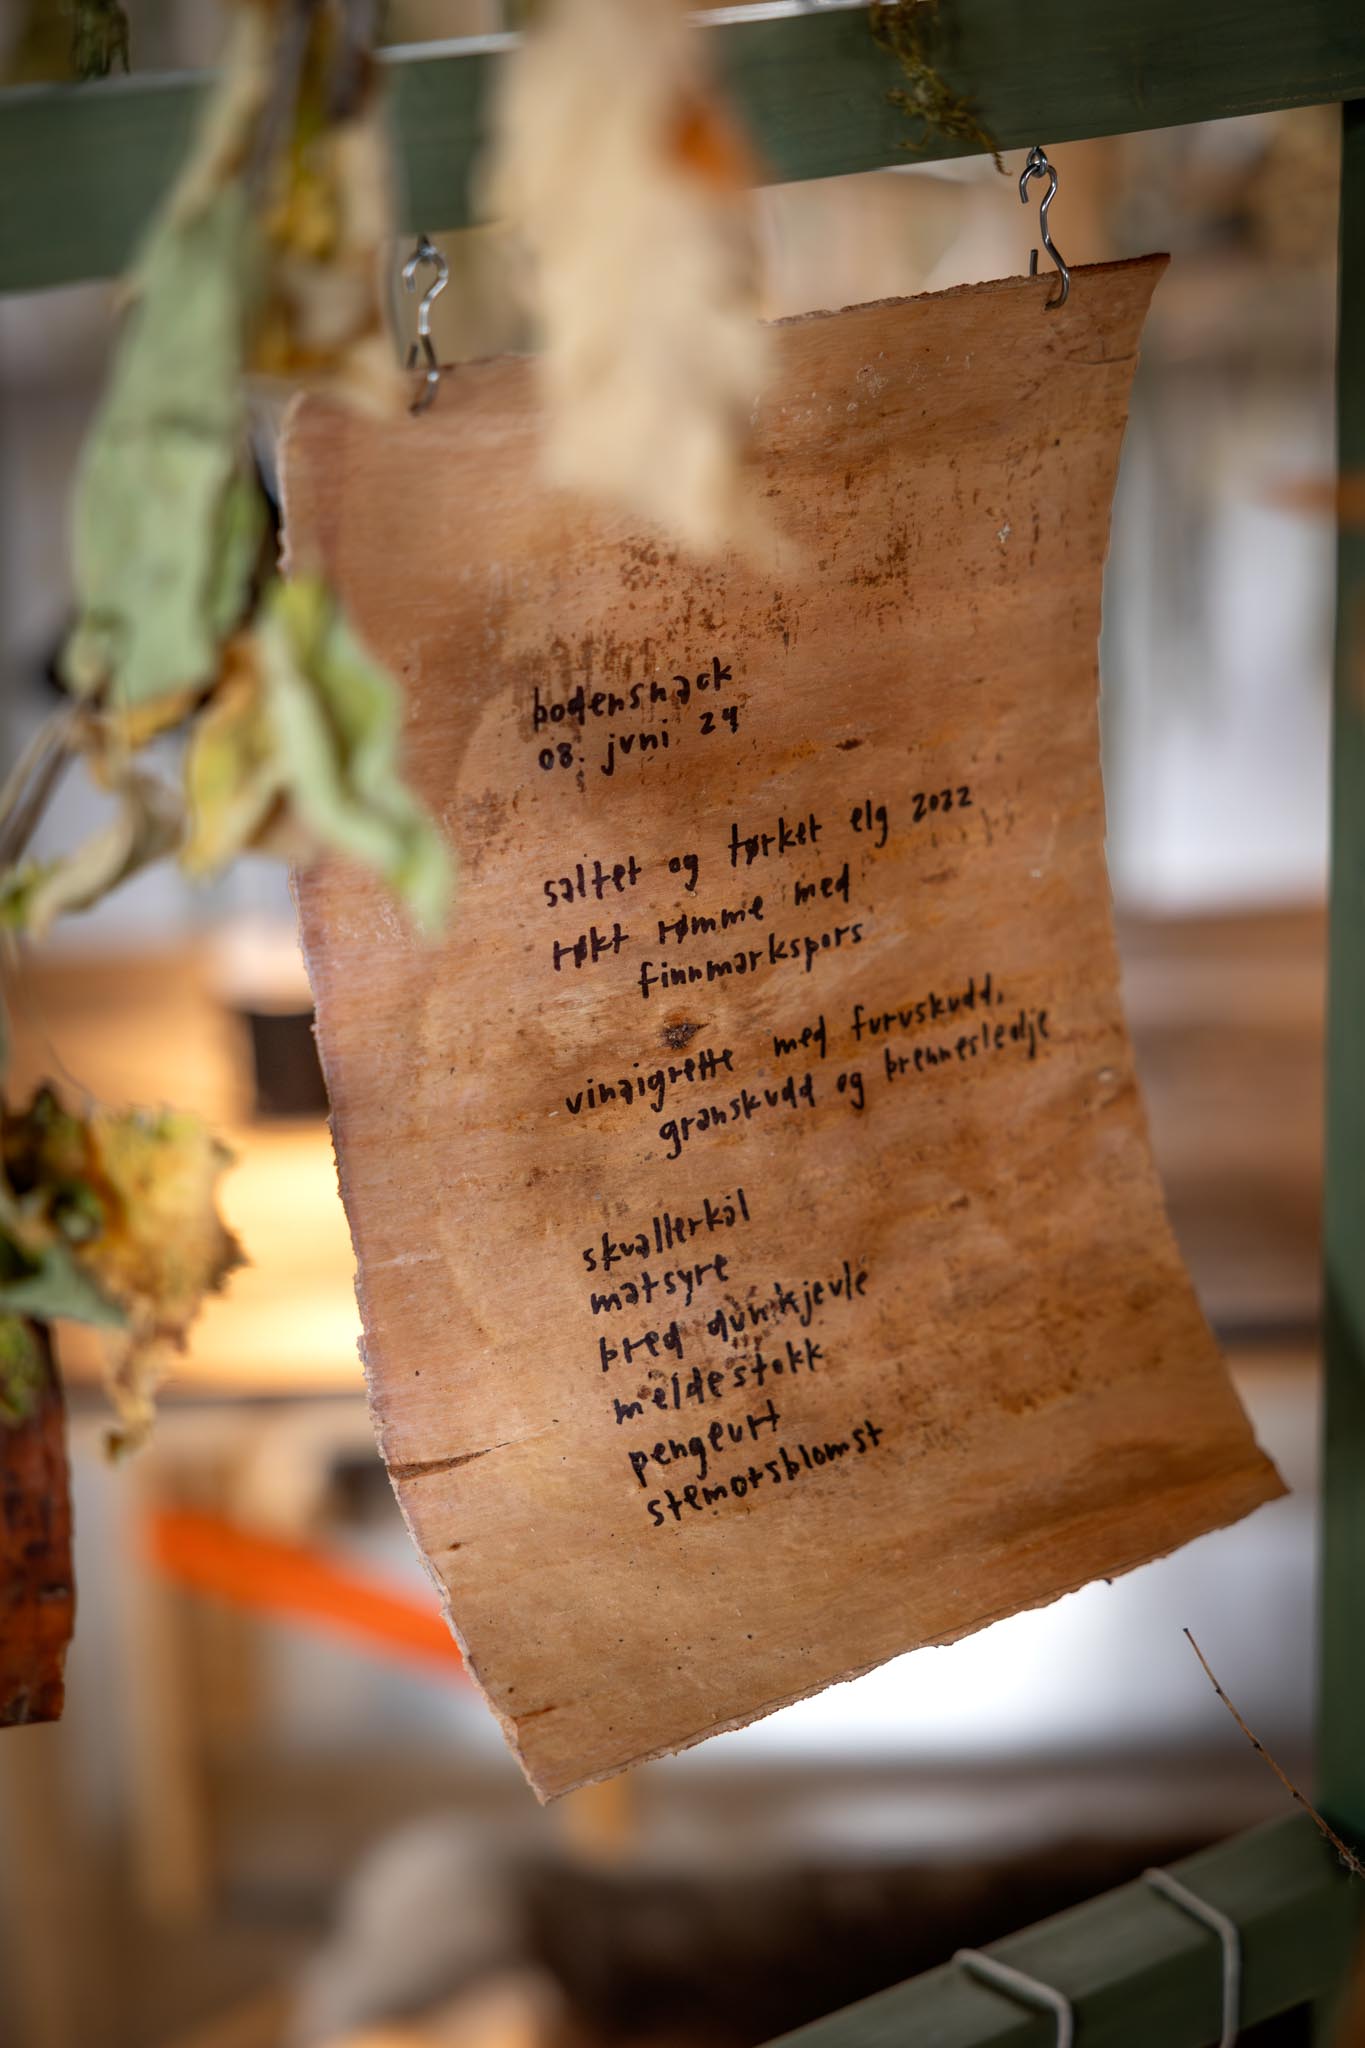 bodensnack
08. juni 24
saltet og tørket elg 2022
røkt rømme med
finnmarkspors
vinaigrette med furuskudd,
granskudd og brennesledje
skvallerkål
matsyre
bred dunkjevle
meldestokk
pengeurt
stemorsblomst